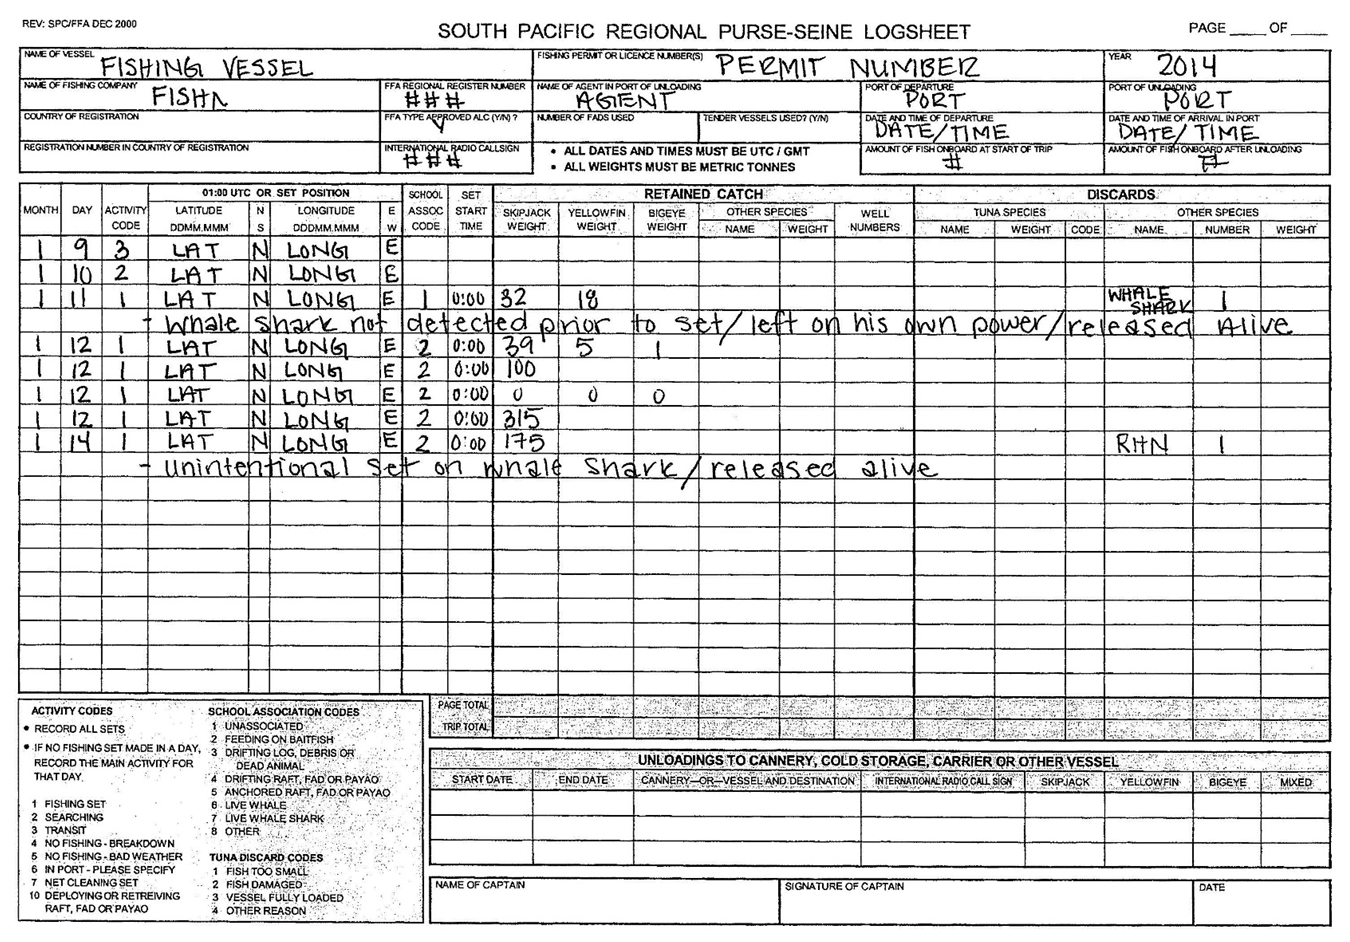 REV: SPC/FFA DEC 2000
SOUTH PACIFIC REGIONAL PURSE-SEINE LOGSHEET
PAGE ____ OF ____
NAME OF VESSEL FISHING VESSEL
FISHING PERMIT OR LICENCE NUMBER(S) PERMIT NUMBER
YEAR 2014
NAME OF FISHING COMPANY FISHN
FFA REGIONAL REGISTER NUMBER ###
NAME OF AGENT IN PORT OF UNLOADING AGENT
PORT OF DEPARTURE PORT
PORT OF UNLOADING PORT
COUNTRY OF REGISTRATION
FFA TYPE APPROVED ALC (Y/N) ? Y
NUMBER OF FADS USED
TENDER VESSELS USED? (Y/N)
DATE AND TIME OF DEPARTURE DATE/TIME
DATE AND TIME OF ARRIVAL IN PORT DATE/TIME
REGISTRATION NUMBER IN COUNTRY OF REGISTRATION
INTERNATIONAL RADIO CALLSIGN ###
• ALL DATES AND TIMES MUST BE UTC / GMT
• ALL WEIGHTS MUST BE METRIC TONNES
AMOUNT OF FISH ONBOARD AT START OF TRIP #
AMOUNT OF FISH ONBOARD AFTER UNLOADING #
01:00 UTC OR SET POSITION RETAINED CATCH DISCARDS
MONTH DAY ACTIVITY CODE LATITUDE DDMM.MMM N S LONGITUDE DDDMM.MMM E W SCHOOL ASSOC CODE SET START TIME SKIPJACK WEIGHT YELLOWFIN WEIGHT BIGEYE WEIGHT OTHER SPECIES NAME WEIGHT WELL NUMBERS TUNA SPECIES NAME WEIGHT CODE OTHER SPECIES NAME NUMBER WEIGHT
1 9 3 LAT N LONG E
1 10 2 LAT N LONG E
1 11 1 LAT N LONG E 1 0:00 32 18 WHALE SHARK 1
- Whale shark not detected prior to set/left on his own power/released Alive
1 12 1 LAT N LONG E 2 0:00 39 5 1
1 12 1 LAT N LONG E 2 0:00 100
1 12 1 LAT N LONG E 2 0:00 0 0 0
1 12 1 LAT N LONG E 2 0:00 315
1 14 1 LAT N LONG E 2 0:00 175 RHN 1
- unintentional set on whale shark/released alive
PAGE TOTAL
TRIP TOTAL
ACTIVITY CODES
• RECORD ALL SETS
• IF NO FISHING SET MADE IN A DAY,
RECORD THE MAIN ACTIVITY FOR
THAT DAY.
1 FISHING SET
2 SEARCHING
3 TRANSIT
4 NO FISHING - BREAKDOWN
5 NO FISHING - BAD WEATHER
6 IN PORT - PLEASE SPECIFY
7 NET CLEANING SET
10 DEPLOYING OR RETREIVING
RAFT, FAD OR PAYAO
SCHOOL ASSOCIATION CODES
1 UNASSOCIATED
2 FEEDING ON BAITFISH
3 DRIFTING LOG, DEBRIS OR
DEAD ANIMAL
4 DRIFTING RAFT, FAD OR PAYAO
5 ANCHORED RAFT, FAD OR PAYAO
6 LIVE WHALE
7 LIVE WHALE SHARK
8 OTHER
TUNA DISCARD CODES
1 FISH TOO SMALL
2 FISH DAMAGED
3 VESSEL FULLY LOADED
4 OTHER REASON
UNLOADINGS TO CANNERY, COLD STORAGE, CARRIER OR OTHER VESSEL
START DATE END DATE CANNERY—OR—VESSEL AND DESTINATION INTERNATIONAL RADIO CALL SIGN SKIPJACK YELLOWFIN BIGEYE MIXED
NAME OF CAPTAIN SIGNATURE OF CAPTAIN DATE